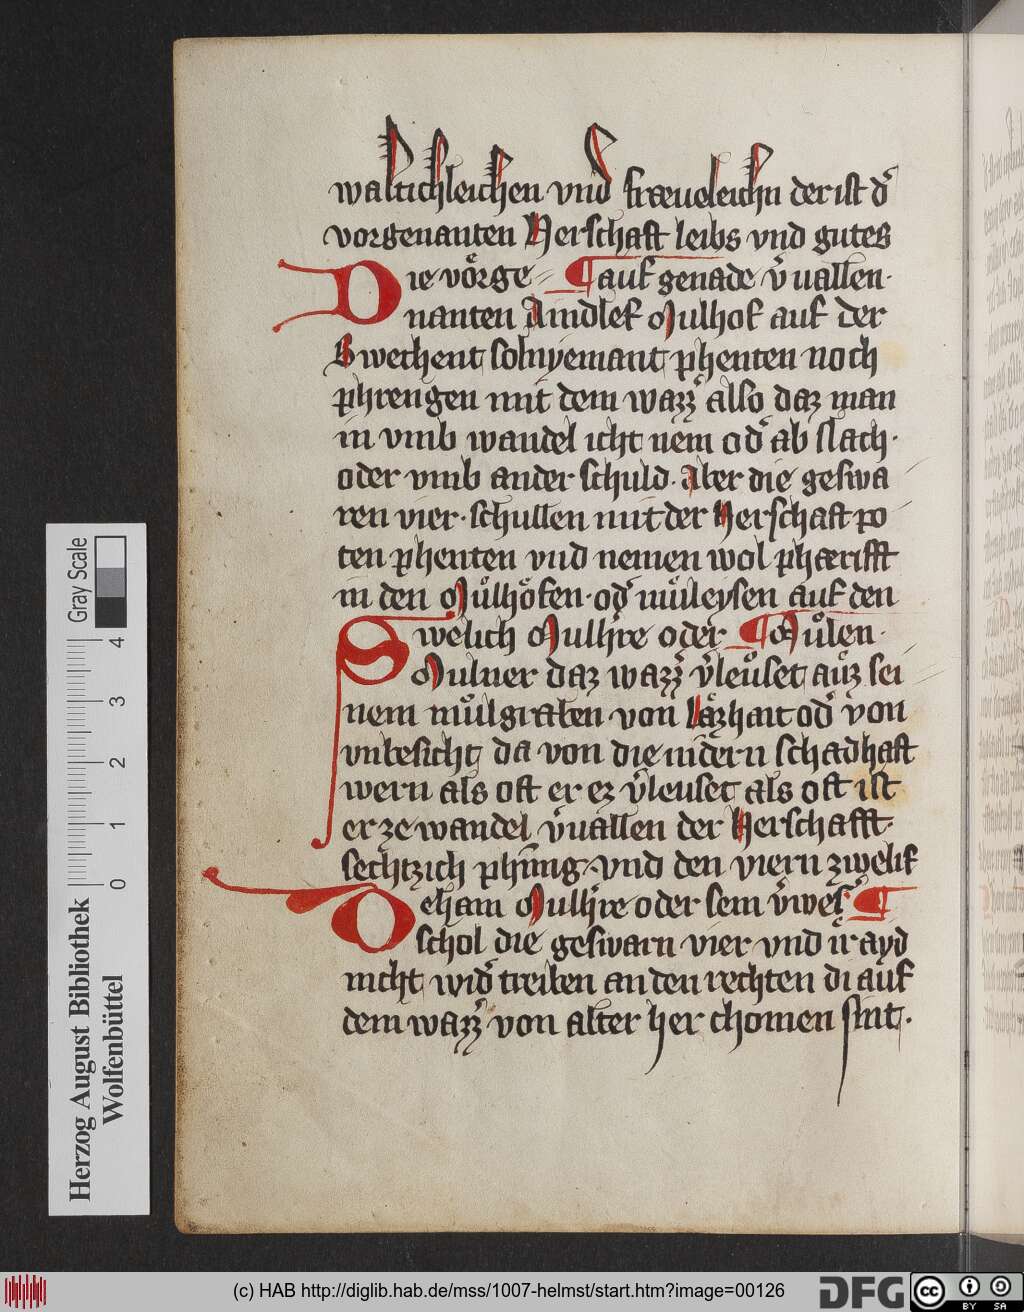 waltichleichen vnd fræueleichn der ist dˢ
vorgenanten Herschaft leibs vnd gutes
Die voͤrge= ¶ auf genade vˢuallen·
nanten Aindlef Mulhof auf der
Swechent sol nyemant phenten noch
phrengen mit dem wazzˢ also daz man
in vmb wandel icht nem odˢ ab slach·
oder vmb ander schuld· Aber die geswa
ren vier· schullen mit der Herschaft po
ten phenten vnd nemen wol phærifft
in den Muͤlhoͤfen· odˢ muͤleysen auf den
Swelich Mulhˢre oder ¶ Muͤlen·
Mulner daz wazzˢ vˢleuͤset auͤz sei
nem muͤlgraben von laͤzhait odˢ von
vnbesicht da von die nidern schadhaft
wern als oft er ez vˢleuset als oft ist
er ze wandel vˢuallen der Herschafft·
sechtzich phning· vnd den viern zwelif
Deham Mulhˢre oder sein vˢwesˢ ¶
schol die geswarn vier vnd ir ayd
nicht widˢ treiben an den rechten di auf
dem wazzˢ von alter her chomen sint·
Gray Scale
4
3
2
1
0
Herzog August Bibliothek
Wolfenbüttel
(c) HAB http://diglib.hab.de/mss/1007-helmst/start.htm?image=00126
DFG
cc
BY SA